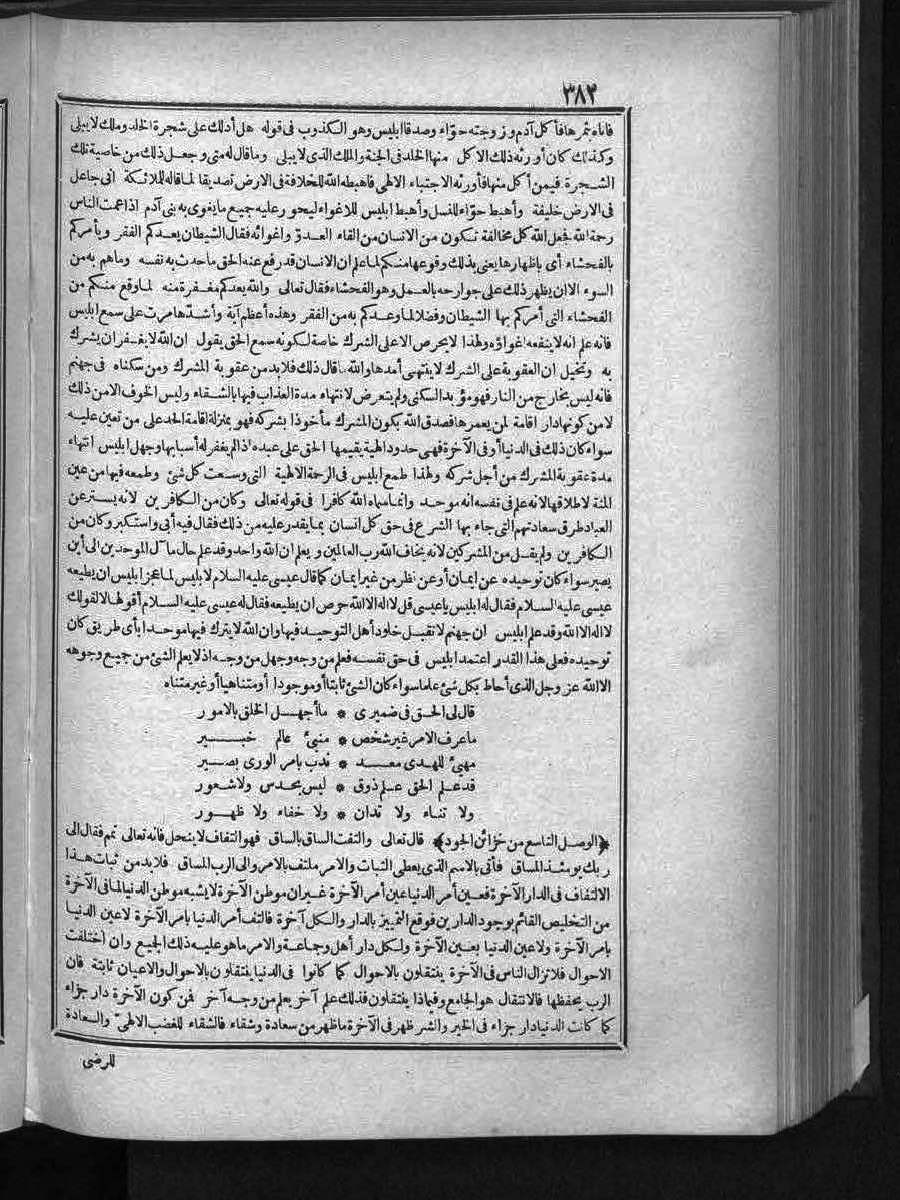 ٣٨٢
فاناه ثمرها فأكل آدم وزوجته حوّاء وصدقا ابليس وهو الكذوب فى قوله هل أدلك على شجرة الخلد وملك لا يبلى
وكذلك كان أورثه ذلك الاكل منها الخلد فى الجنة والملك الذى لا يبلى وما قال له متى وجعل ذلك من خاصية تلك
الشجرة فيمن أكل منها فأورثه الاجتباء الالهى فاهبطه الله للخلافة فى الارض تصديقا لما قاله للملائكة انى جاعل
فى الارض خليفة وأهبط حوّاء للنسل وأهبط ابليس للاغواء ليحور عليه جميع ما يغوى به بنى آدم اذا عمت الناس
رحمة الله فجعل الله كل مخالفة تكون من الانسان من القاء العدوّ واغوائه فقال الشيطان يعدكم الفقر ويأمركم
بالفحشاء أى باظهارها يعنى بذلك وقوعها منكم لما علم ان الانسان قد رفع عنه الحق ما حدث به نفسه وماهم به من
السوء الا ان يظهر ذلك على جوارحه بالعمل وهو الفحشاء فقال تعالى والله يعدكم مغفرة منه لما وقع منكم من
الفحشاء التى أمركم بها الشيطان وفضلا لما وعدكم به من الفقر وهذه أعظم آية وأشدّها مرت على سمع ابليس
فانه علم انه لا ينفعه اغواؤه ولهذا لا يحرص الا على الشرك خاصة لكونه سمع الحق يقول ان الله لا يغفر ان يشرك
به وتخيل ان العقوبة على الشرك لا ينتهى أمدها والله ما قال ذلك فلا بد من عقوبة المشرك ومن سكناه فى جهنم
فانه ليس بخارج من النار فهو مؤبد السكنى ولم يتعرض لانتهاء مدة العذاب فيها بالشقاء وليس الخوف الا من ذلك
لا من كونها دار اقامة لمن يعمرها فصدق الله بكون المشرك مأخوذا بشركه فهو بمنزلة اقامة الحد على من تعين عليه
سواء كان ذلك فى الدنيا أو فى الآخرة فهى حدود الهية يقيمها الحق على عبده اذا لم يغفر له أسبابها وجهل ابليس انتهاء
مدة عقوبة المشرك من أجل شركه ولهذا طمع ابليس فى الرحة الالهية التى وسعت كل شئ وطمعه فيها من عين
المنة لاطلاقها لانه علم فى نفسه انه موحد وانما سماه الله كافرا فى قوله تعالى وكان من الكافرين لانه يستر عن
العباد طرق سعادتهم التى جاء بها الشرع فى حق كل انسان بما يقدر عليه من ذلك فقال فيه أبى واستكبر وكان من
الكافرين ولم يقل من المشركين لانه يخاف الله رب العالمين ويعلم ان الله واحد وقد علم حال مآل الموحدين الى أين
يصير سواء كان توحيده عن ايمان أو عن نظر من غير ايمان كما قال عيسى عليه السلام لابليس لما عجز ابليس ان يطيعه
عيسى عليه السلام فقال له ابليس يا عيسى قل لا اله الا الله حرص ان يطيعه فقال له عيسى عليه السلام أقولها لا لقولك
لا اله الا الله وقد علم ابليس ان جهنم لا تقبل خلود أهل التوحيد فيها وان الله لا يترك فيها موحدا بأى طريق كان
توحيده فعلى هذا القدر اعتمد ابليس فى حق نفسه فعلم من وجه وجهل من وجه اذ لا يعلم الشئ من جميع وجوهه
الا الله عز وجل الذى أحاط بكل شئ علما سواء كان الشئ ثابتا أو موجودا أو متناهيا أو غير متناه
قال لى الحق فى ضميرى * ما أجهل الخلق بالامور
ما عرف الامر غير شخص * منبئ عالم خبير
مهيئ للهدى معد * ندب بامر الورى بصير
قد علم الحق علم ذوق * ليس بحدس ولا شعور
ولا تناء ولا تدان * ولا خفاء ولا ظهور
﴿الوصل التاسع من خزائن الجود﴾ قال تعالى والتفت الساق بالساق فهو التفاف لا ينحل فانه تعالى تمم فقال الى
ربك يومئذ المساق فأتى بالاسم الذى يعطى الثبات والامر ملتف بالامر والى الرب المساق فلا بد من ثبات هذا
الالتفاف فى الدار الآخرة فعين أمر الدنيا عين أمر الآخرة غير ان موطن الآخرة لا يشبه موطن الدنيا لما فى الآخرة
من التخليص القائم بوجود الدارين فوقع التمييز بالدار والكل آخرة فالتف أمر الدنيا بامر الآخرة لا عين الدنيا
بامر الآخرة ولا عين الدنيا بعين الآخرة ولكل دار أهل وجماعة والامر ما هو عليه ذلك الجيع وان اختلفت
الاحوال فلا تزال الناس فى الآخرة ينتقلون بالاحوال كما كانوا فى الدنيا ينتقلون بالاحوال والاعيان ثابتة فان
الرب يحفظها فالانتقال هو الجامع وفيماذا ينتقلون فذلك علم آخر يعلم من وجه آخر فمن كون الآخرة دار جزاء
كما كانت الدنيا دار جزاء فى الخير والشر ظهر فى الآخرة ما ظهر من سعادة وشقاء فالشقاء للغضب الالهىّ والسعادة
للرضى